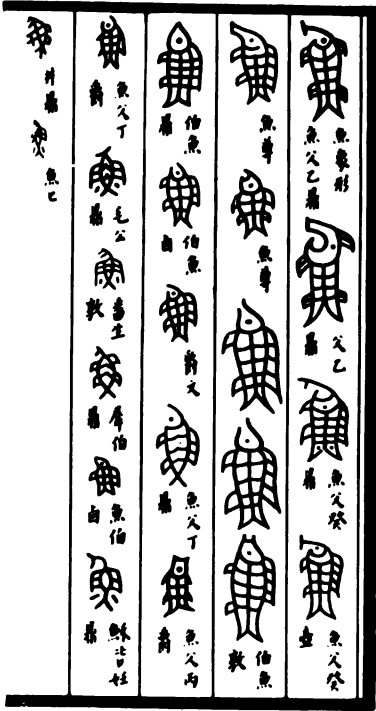 魚象形
魚父乙鼎
父乙
鼎
魚父癸
鼎
魚父癸
壺
魚尊
魚尊
伯魚
敦
伯魚
鼎
伯魚
卣
爵文
魚父丁
鼎
魚父丙
爵
魚父丁
爵
毛公
鼎
番生
敦
犀伯
鼎
魚伯
卣
穌冶妊
鼎
井鼎
魚匕